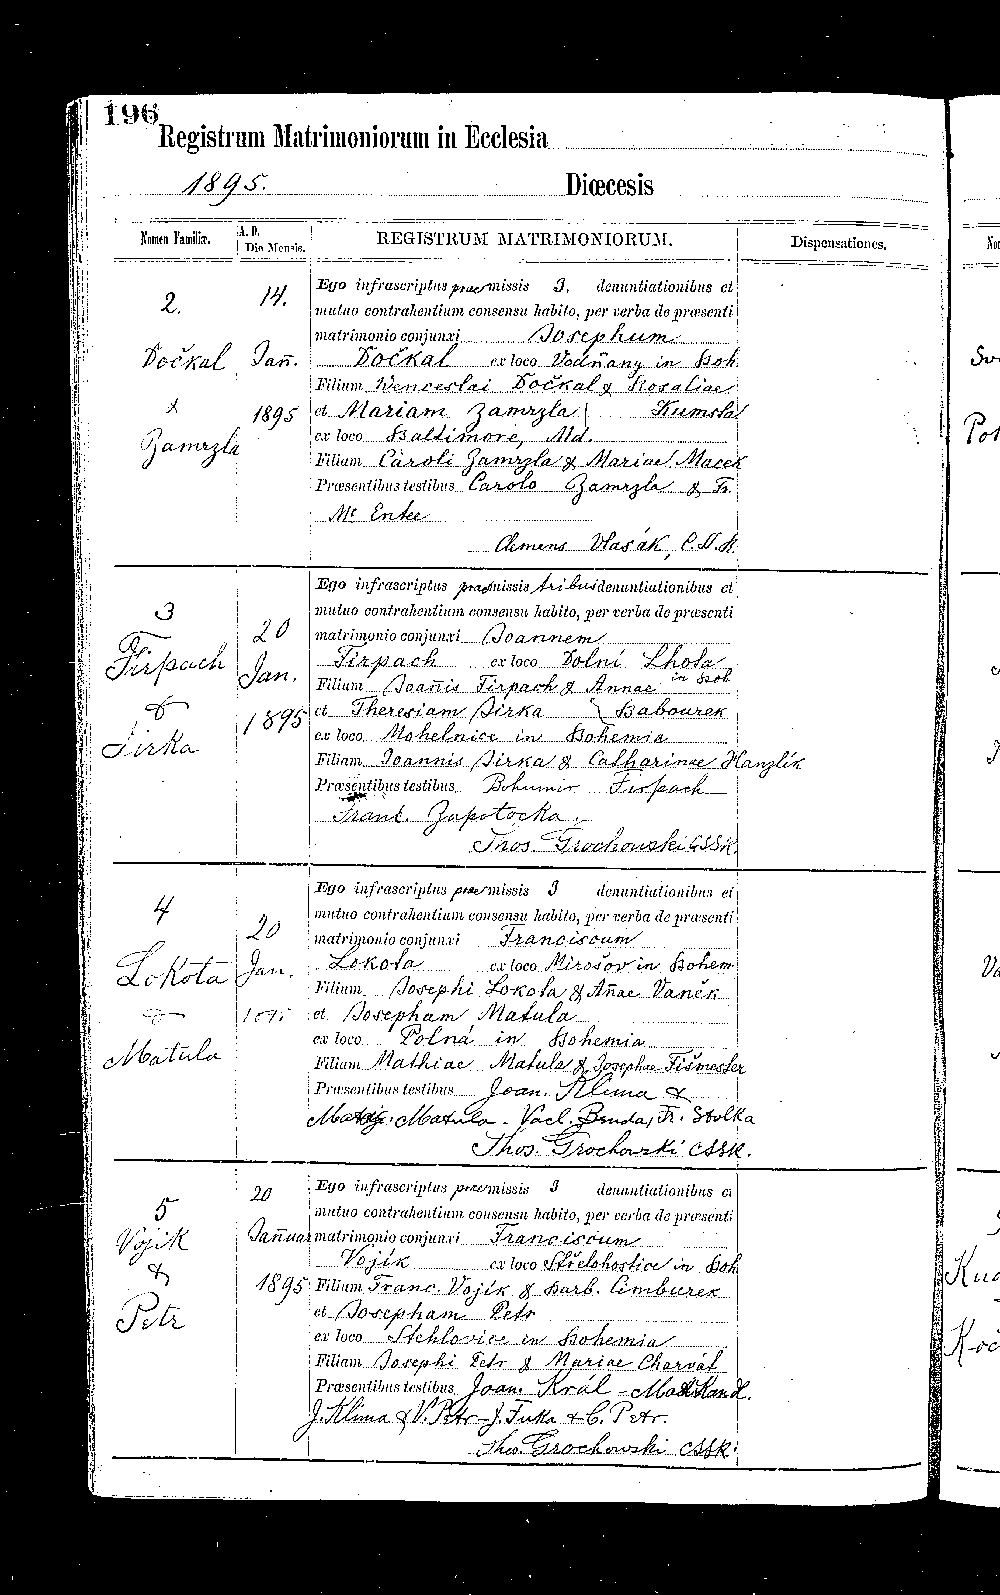 196
Registrum Matrimoniorum in Ecclesia
1895.
Diœcesis
Nomen Familiæ.
A. D.
Die Mensis.
REGISTRUM MATRIMONIORUM.
Dispensationes.
2.
Dočkal
&
Zamrzla
14.
Jan̄.
1895
Ego infrascriptus praemissis 3. denuntiationibus et
mutuo contrahentium consensu habito, per verba de præsenti
matrimonio conjunxi Josephum
Dočkal ex loco Vodňany in Boh
Filium Wenceslai Dočkal & Rosaliae
et Mariam Zamrzla Kumsta
ex loco Baltimore, Md.
Filiam Caroli Zamrzla & Mariae Macek
Præsentibus testibus Carolo Zamrzla & Fr.
Mc Entee
Clemens Vlasák, C.S.S.R.
3
Firpach
&
Jirka
20
Jan.
1895
Ego infrascriptus praemissis tribus denuntiationibus et
mutuo contrahentium consensu habito, per verba de præsenti
matrimonio conjunxi Joannem
Firpach ex loco Dolní Lhota
in Boh
Filium Joan̄is Firpach & Annae
et Theresiam Jirka Babourek
ex loco Mohelnice in Bohemia
Filiam Joannis Jirka & Catharinae Hanzlík
Præsentibus testibus Bohumir Firpach
Frant. Zapotocka.
Thos. Grochowski CSSR.
4
Lokota
&
Matula
20
Jan.
1895
Ego infrascriptus praemissis 3 denuntiationibus et
mutuo contrahentium consensu habito, per verba de præsenti
matrimonio conjunxi Franciscum
Lokota ex loco Mirošov in Bohem
Filium Josephi Lokota & An̄ae Vaněk
et Josepham Matula
ex loco Polná in Bohemia
Filiam Mathiae Matula & Josephae Fišmester
Præsentibus testibus Joan. Klima &
Matula - Vacl. Bruda, Fr. Stolka
Thos. Grochowski CSSR.
5
Vojik
&
Petr
20
Jan̄uar
1895
Ego infrascriptus praemissis 3 denuntiationibus et
mutuo contrahentium consensu habito, per verba de præsenti
matrimonio conjunxi Franciscum
Vojík ex loco Střelohostice in Boh
Filium Franc. Vojík & Barb. Cimburek
et Josepham Petr
ex loco Stehlovice in Bohemia
Filiam Josephi Petr & Mariae Charvát
Præsentibus testibus Joan. Král -
J. Klima & V. Petr - J. Fuka & C. Petr.
Thos. Grochowski CSSR.